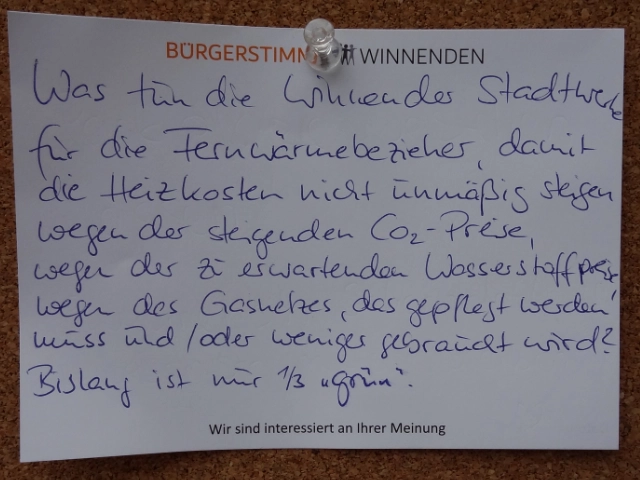 BÜRGERSTIMM WINNENDEN
Was tun die Winnender Stadtwerke
für die Fernwärmebezieher, damit
die Heizkosten nicht unmäßig steigen
wegen der steigenden CO2-Preise,
wegen der zu erwartenden Wasserstoffpreise,
wegen des Gasnetzes, das gepflegt werden
muss und/oder weniger gebraucht wird?
Bislang ist nur 1/3 "grün".
Wir sind interessiert an Ihrer Meinung